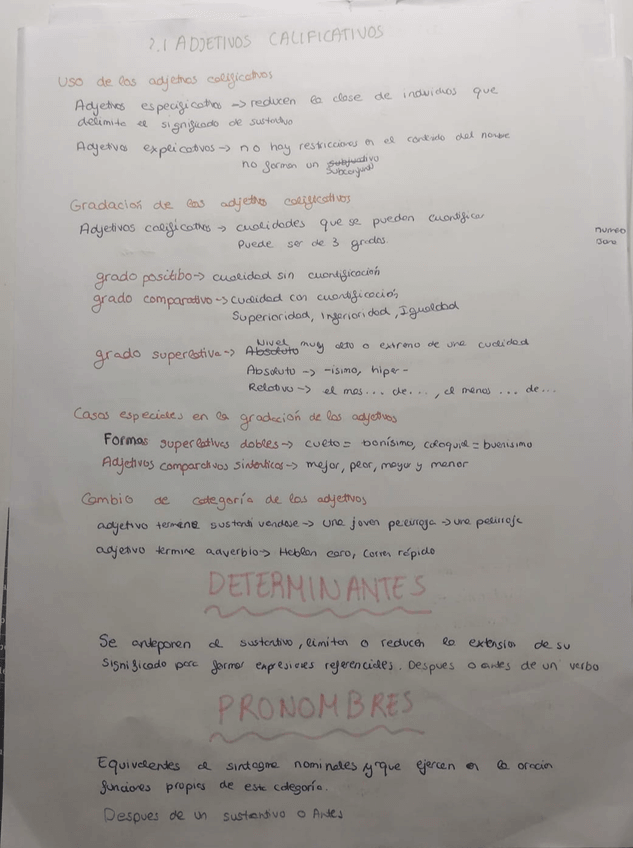 2.1 ADJETIVOS CALIFICATIVOS
Uso de los adjetivos calificativos
Adjetivos especificativos → reducen la clase de individuos que
delimita el significado de sustantivo
Adjetivos explicativos → no hay restricciones en el contenido del nombre
no forman un subconjunto
Gradacion de los adjetivos calificativos
Adjetivos calificativos → cualidades que se pueden cuantificar
Puede ser de 3 grados.
numeo
grado positibo → cualidad sin cuantificación
grado comparativo → cualidad con cuantificación,
Superioridad, Inferioridad, Igualdad
Nivel muy alto o extremo de una cualidad
grado superlativa → Absoluto
Absoluto → -ísimo, hiper-
Relativo → el mas... de..., el menos ... de...
Casos especiales en la gradación de los adjetivos
Formas superlativas dobles → culto = bonísimo, coloquial = buenísimo
Adjetivos comparativos sintéticos → mejor, peor, mayor y menor
Cambio de categoría de los adjetivos
adjetivo termine sustantivandose → una joven pelirroja → una pelirroja
adjetivo termine adverbio → Hablan caro, Corren rápido
DETERMINANTES
Se anteponen al sustantivo, limitan o reducen la extension de su
significado para formar expresiones referenciales. Despues o antes de un verbo
PRONOMBRES
Equivalentes al sintagma nominales y que ejercen en la oracion
funciones propias de esta categoría.
Despues de un sustantivo o Antes